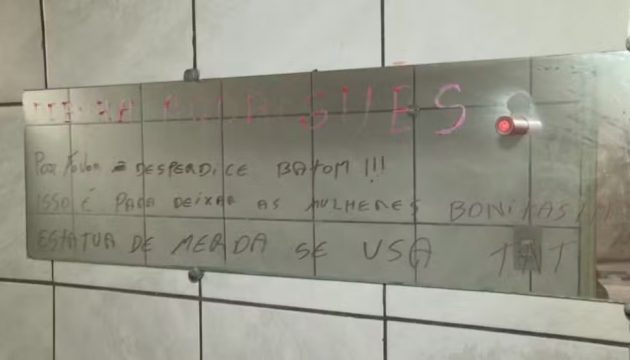 SUES
POR FAVOR Ñ DESPERDICE BATOM !!!
ISSO É PARA DEIXAR AS MULHERES BONITAS !!!
ESTATUA DE MERDA SE USA TNT